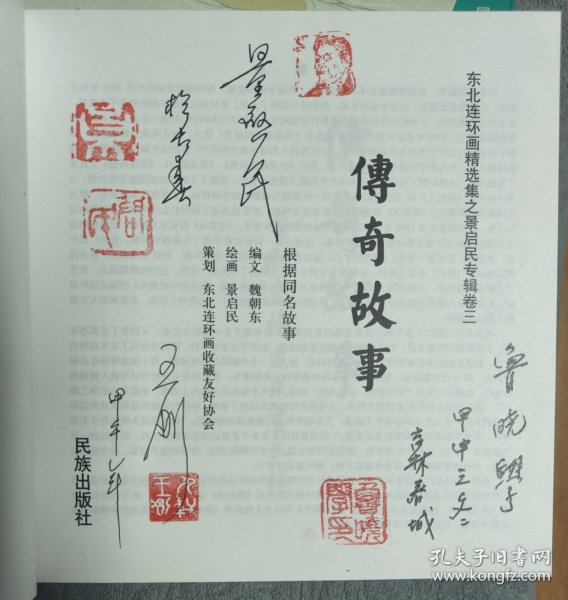 东北连环画精选集之景启民专辑卷三
傳奇故事
根据同名故事
编文 魏朝东
绘画 景启民
策划 东北连环画收藏友好协会
民族出版社
景启民
于长春
王刚
鲁晓
吉林春城
孔夫子旧书网
www.kongfz.com